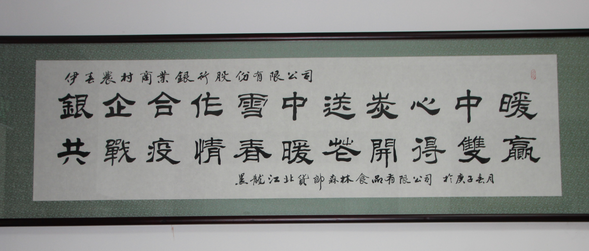 伊春農村商業銀行股份有限公司
銀企合作雪中送炭心中暖
共戰疫情春暖花開得雙贏
黑龍江北貨郎森林食品有限公司 於庚子春月